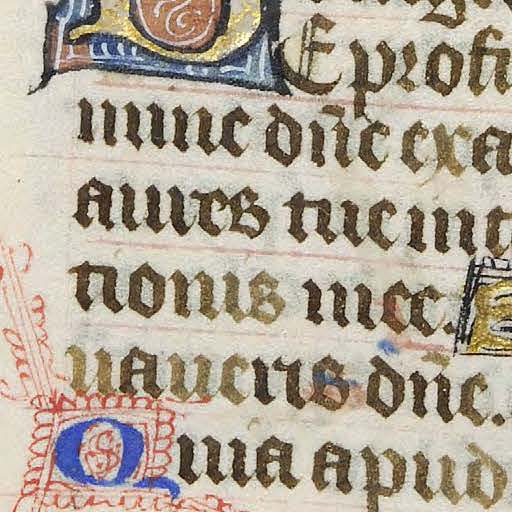 E profu
nunc dñe exa
aures tue int
tionis mee.
uaueris dñe.
Quia apud